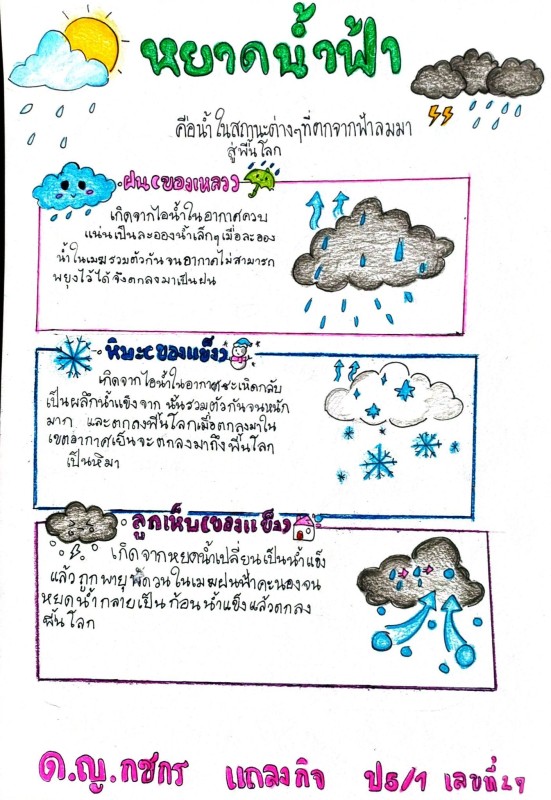 หยาดน้ำฟ้า
คือน้ำในสถานะต่างๆที่ตกจากฟ้าลงมา
สู่พื้นโลก
ฝน(ของเหลว)
เกิดจากไอน้ำในอากาศควบ
แน่นเป็นละอองน้ำเล็กๆเมื่อละออง
น้ำในเมฆรวมตัวกันจนอากาศไม่สามารถ
พยุงไว้ได้จึงตกลงมาเป็นฝน
หิมะ(ของแข็ง)
เกิดจากไอน้ำในอากาศระเหิดกลับ
เป็นผลึกน้ำแข็งจาก นั้นรวมตัวกันจนหนัก
มาก และตกลงพื้นโลกเมื่อตกลงมาใน
เขตอากาศเย็นจะตกลงมาถึงพื้นโลก
เป็นหิมา
ลูกเห็บ(ของแข็ง)
เกิดจากหยดน้ำเปลี่ยนเป็นน้ำแข็ง
แล้วถูกพายุพัดวนในเมฆฝนฟ้าคะนองจน
หยดน้ำกลายเป็นก้อนน้ำแข็งแล้วตกลง
พื้นโลก
ด.ญ.กชกร แถลงกิจ ป5/1 เลขที่29